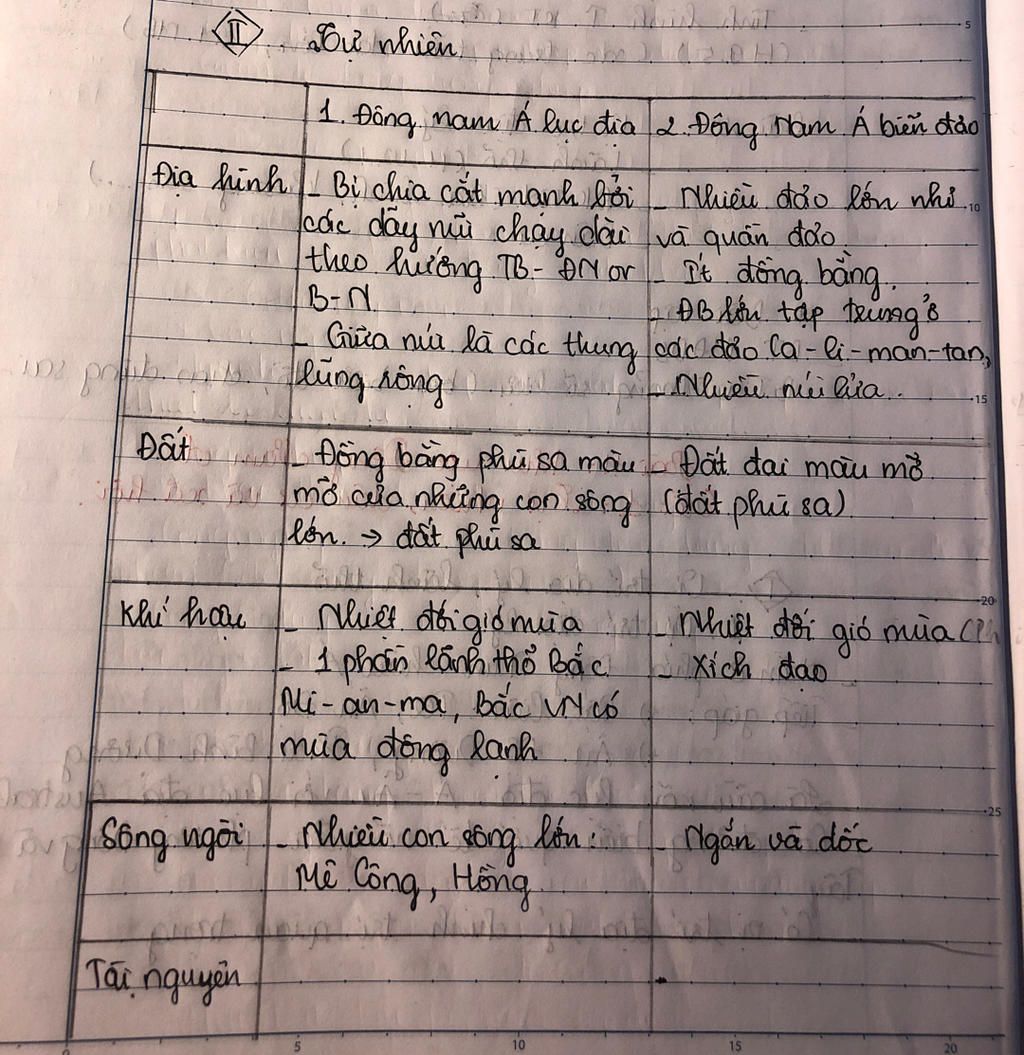 II Tự nhiên
1. Đông nam Á lục địa
2. Đông Nam Á biển đảo
Địa hình
- Bị chia cắt mạnh bởi
các dãy núi chạy dài
theo hướng TB - ĐN or
B-N
- Giữa núi là các thung
lũng sông
- Nhiều đảo lớn nhỏ
và quần đảo
- Ít đồng bằng.
- ĐB lớn tập trung ở
các đảo Ca-li-man-tan,
- Nhiều núi lửa.
Đất
- Đồng bằng phù sa màu
mỡ của những con sông
lớn. → đất phù sa
- Đất đai màu mỡ
(đất phù sa)
Khí hậu
- Nhiệt đới gió mùa
- 1 phần lãnh thổ Bắc
Mi-an-ma, Bắc VN có
mùa đông lạnh
- Nhiệt đới gió mùa
- Xích đạo
Sông ngòi
- Nhiều con sông lớn:
Mê Công, Hồng
- Ngắn và dốc
Tài nguyên
5
10
15
20
25
5
10
15
20